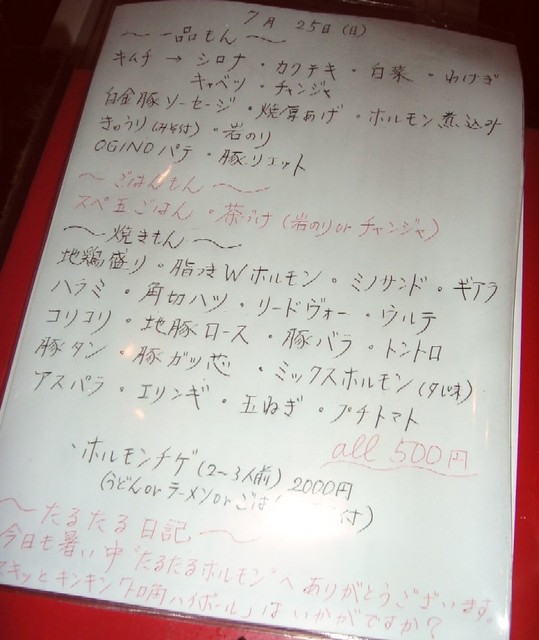 7月 25日(日)
～一品もん～
キムチ → シロナ・カクテキ・白菜・わけぎ
キャベツ・チャンジャ
白金豚ソーセージ・焼厚あげ・ホルモン煮込み
きゅうり(みそ付)・岩のり
OGINOパテ・豚リエット
～ごはんもん～
スペ玉ごはん・茶づけ(岩のりorチャンジャ)
～焼きもん～
地鶏盛り・脂つきWホルモン・ミノサンド・ギアラ
ハラミ・角切ハツ・リードヴォー・ウルテ
コリコリ・地豚ロース・豚バラ・トントロ
豚タン・豚ガツ芯・ミックスホルモン(タレ味)
アスパラ・エリンギ・玉ねぎ・プチトマト
all 500円
・ホルモンチゲ(2～3人前) 2000円
(うどんorラーメンorごは 付)
～たるたる日記～
今日も暑い中"たるたるホルモン"へありがとうございます。
スキッとキンキン「トロ角ハイボール」はいかがですか?